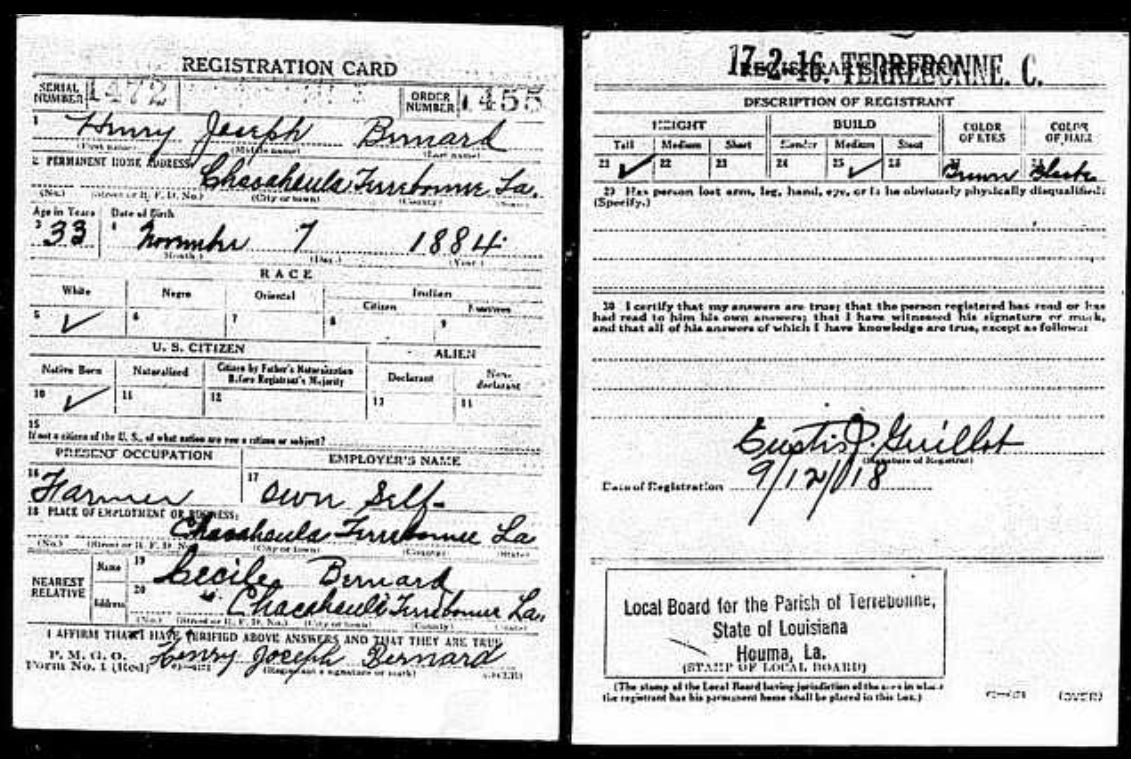 REGISTRATION CARD
SERIAL NUMBER 1472
ORDER NUMBER 1455
1 Henry Joseph Bernard
(First name) (Middle name) (Last name)
2 PERMANENT HOME ADDRESS:
Chacahoula Terrebonne La.
(No.) (Street or R. F. D. No.) (City or town) (County) (State)
Age in Years Date of Birth
3 33 4 November 7 1884
(Month.) (Day.) (Year.)
RACE
White Negro Oriental Indian
Citizen Noncitizen
5 ✓ 6 7 8 9
U. S. CITIZEN ALIEN
Native Born Naturalized Citizen by Father's Naturalization Before Registrant's Majority Declarant Non-declarant
10 ✓ 11 12 13 14
15
If not a citizen of the U. S., of what nation are you a citizen or subject?
PRESENT OCCUPATION EMPLOYER'S NAME
16 Farmer 17 Own Self
18 PLACE OF EMPLOYMENT OR BUSINESS:
Chacahoula Terrebonne La
(No.) (Street or R. F. D. No.) (City or town) (County) (State)
NEAREST RELATIVE
Name 19 Cecile Bernard
Address 20 Chacahoula Terrebonne La.
(No.) (Street or R. F. D. No.) (City or town) (County) (State)
I AFFIRM THAT I HAVE VERIFIED ABOVE ANSWERS AND THAT THEY ARE TRUE
P. M. G. O.
Form No. 1 (Red) Henry Joseph Bernard
(Registrant's signature or mark) (OVER)
17-2-16. TERREBONNE. C.
DESCRIPTION OF REGISTRANT
HEIGHT BUILD COLOR OF EYES COLOR OF HAIR
Tall Medium Short Slender Medium Stout
21 ✓ 22 23 24 25 ✓ 26 27 Brown 28 Black
29 Has person lost arm, leg, hand, eye, or is he obviously physically disqualified?
(Specify.)
30 I certify that my answers are true; that the person registered has read or has
had read to him his own answers; that I have witnessed his signature or mark,
and that all of his answers of which I have knowledge are true, except as follows:
Eustis J. Guillot
(Signature of Registrar)
Date of Registration 9/12/18
Local Board for the Parish of Terrebonne,
State of Louisiana
Houma, La.
(STAMP OF LOCAL BOARD)
(The stamp of the Local Board having jurisdiction of the area in which
the registrant has his permanent home shall be placed in this box.)
(OVER)